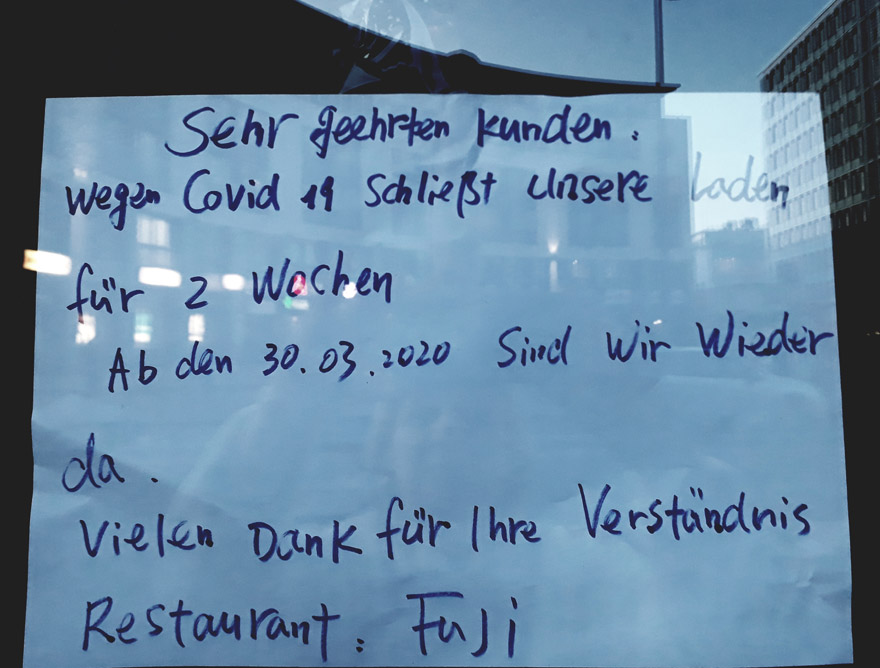 Sehr geehrten kunden.
wegen Covid 19 schließt unsere laden
für 2 Wochen
Ab den 30.03.2020 sind wir wieder
da.
vielen Dank für Ihre Verständnis
Restaurant: Fuji